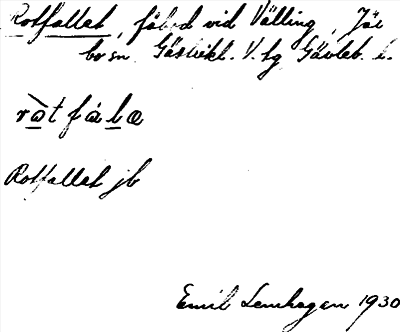 Rotfallet, fäbod vid Välling, Jär
bo sn Gästrikl. V. tg Gävleb. l.
ròt fálæ
Rotfallet jb
Emil Lenhagen 1930